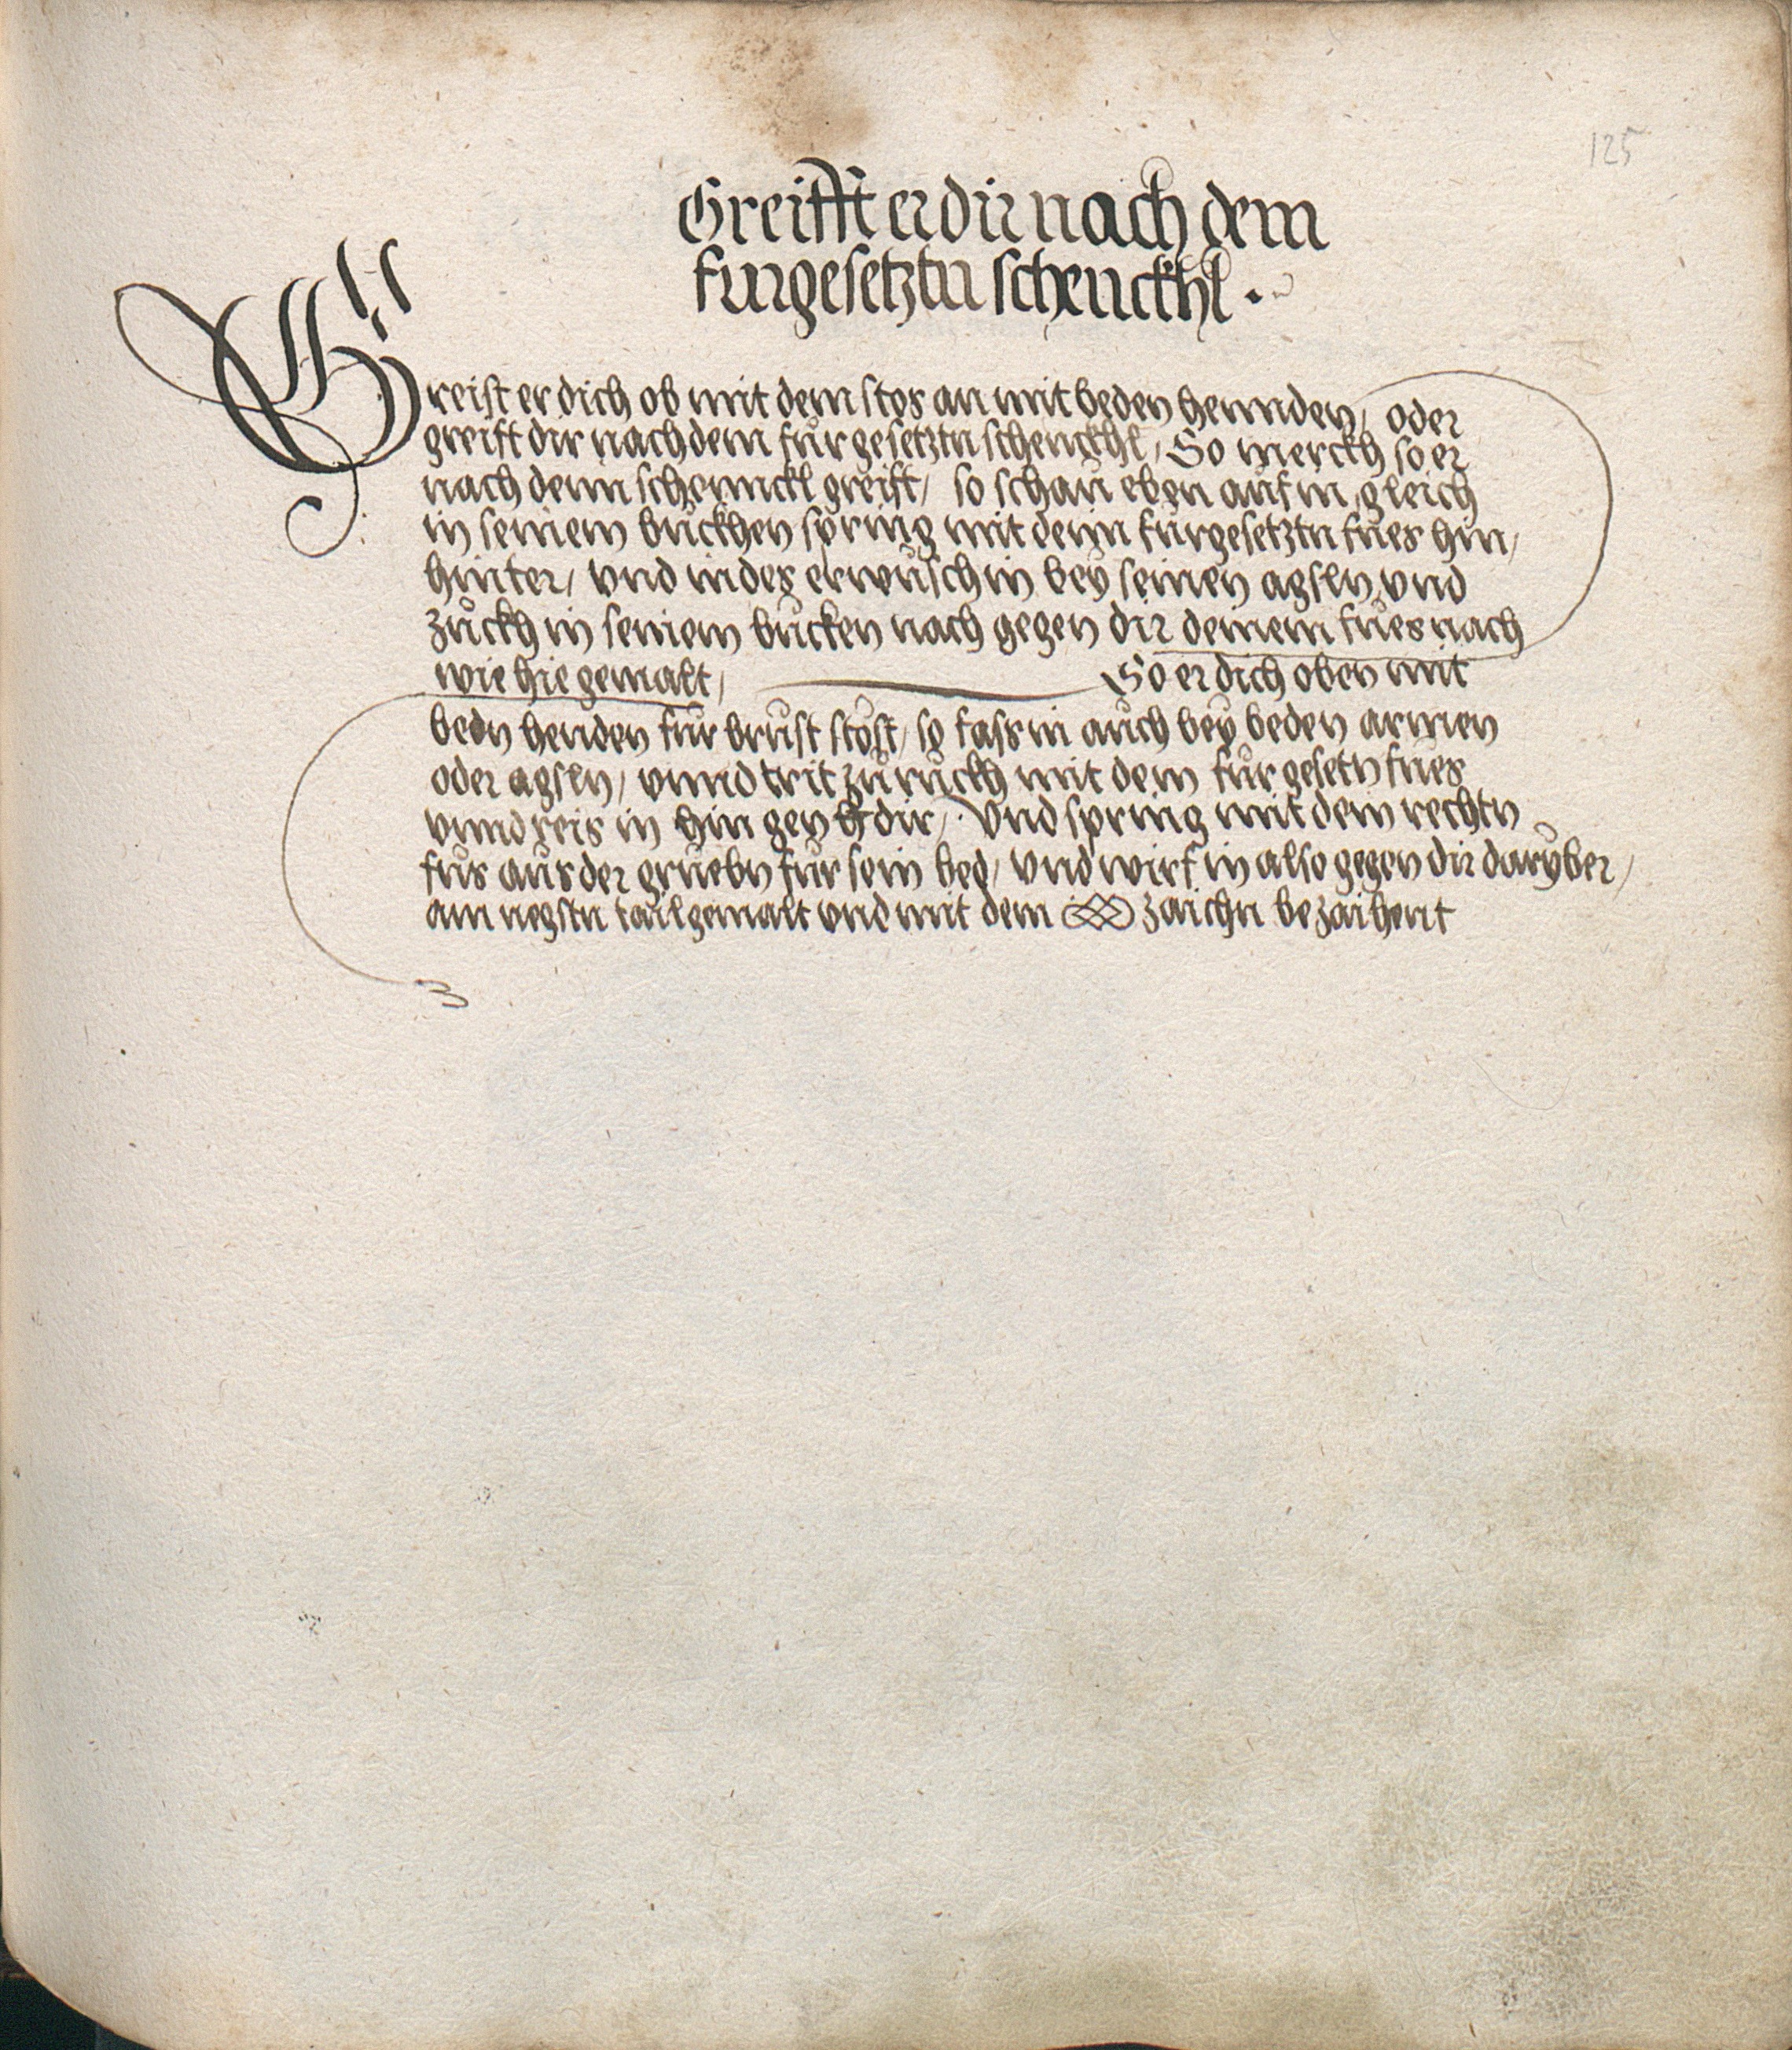 125
Greifft er dir nach dem
furgesetztn schenckhl .
Greift er dich ob mit dem stos an mit beden hennden, oder
greift dir nach dem fůrgesetztn schenckhl, So merckh so er
nach dem schennckl greift, so schaů eben aůf in, gleich
in seinem bůckhen spring mit dem fůrgesetztn fůes hin,
hinter, vnd indes erwůsch in beÿ seinen agsln vnd
zůckh in seinem bůcken nach gegen dir deinem fůes nach
wie hie gemalt, So er dich oben mit
bedn henden fůr brůst stost, so fass in aůch beÿ beden armen
oder agsln, vnnd trit zůrůckh mit dem fůrgesetn fůes
vnnd reis in hin gen dir, Vnd spring mit dem rechtn
fůs aůs der grůebn fůr sein bed, vnd wirf in also gegen dir darÿber,
am negstn tail gemalt vnd mit dem zaichn bezaihent